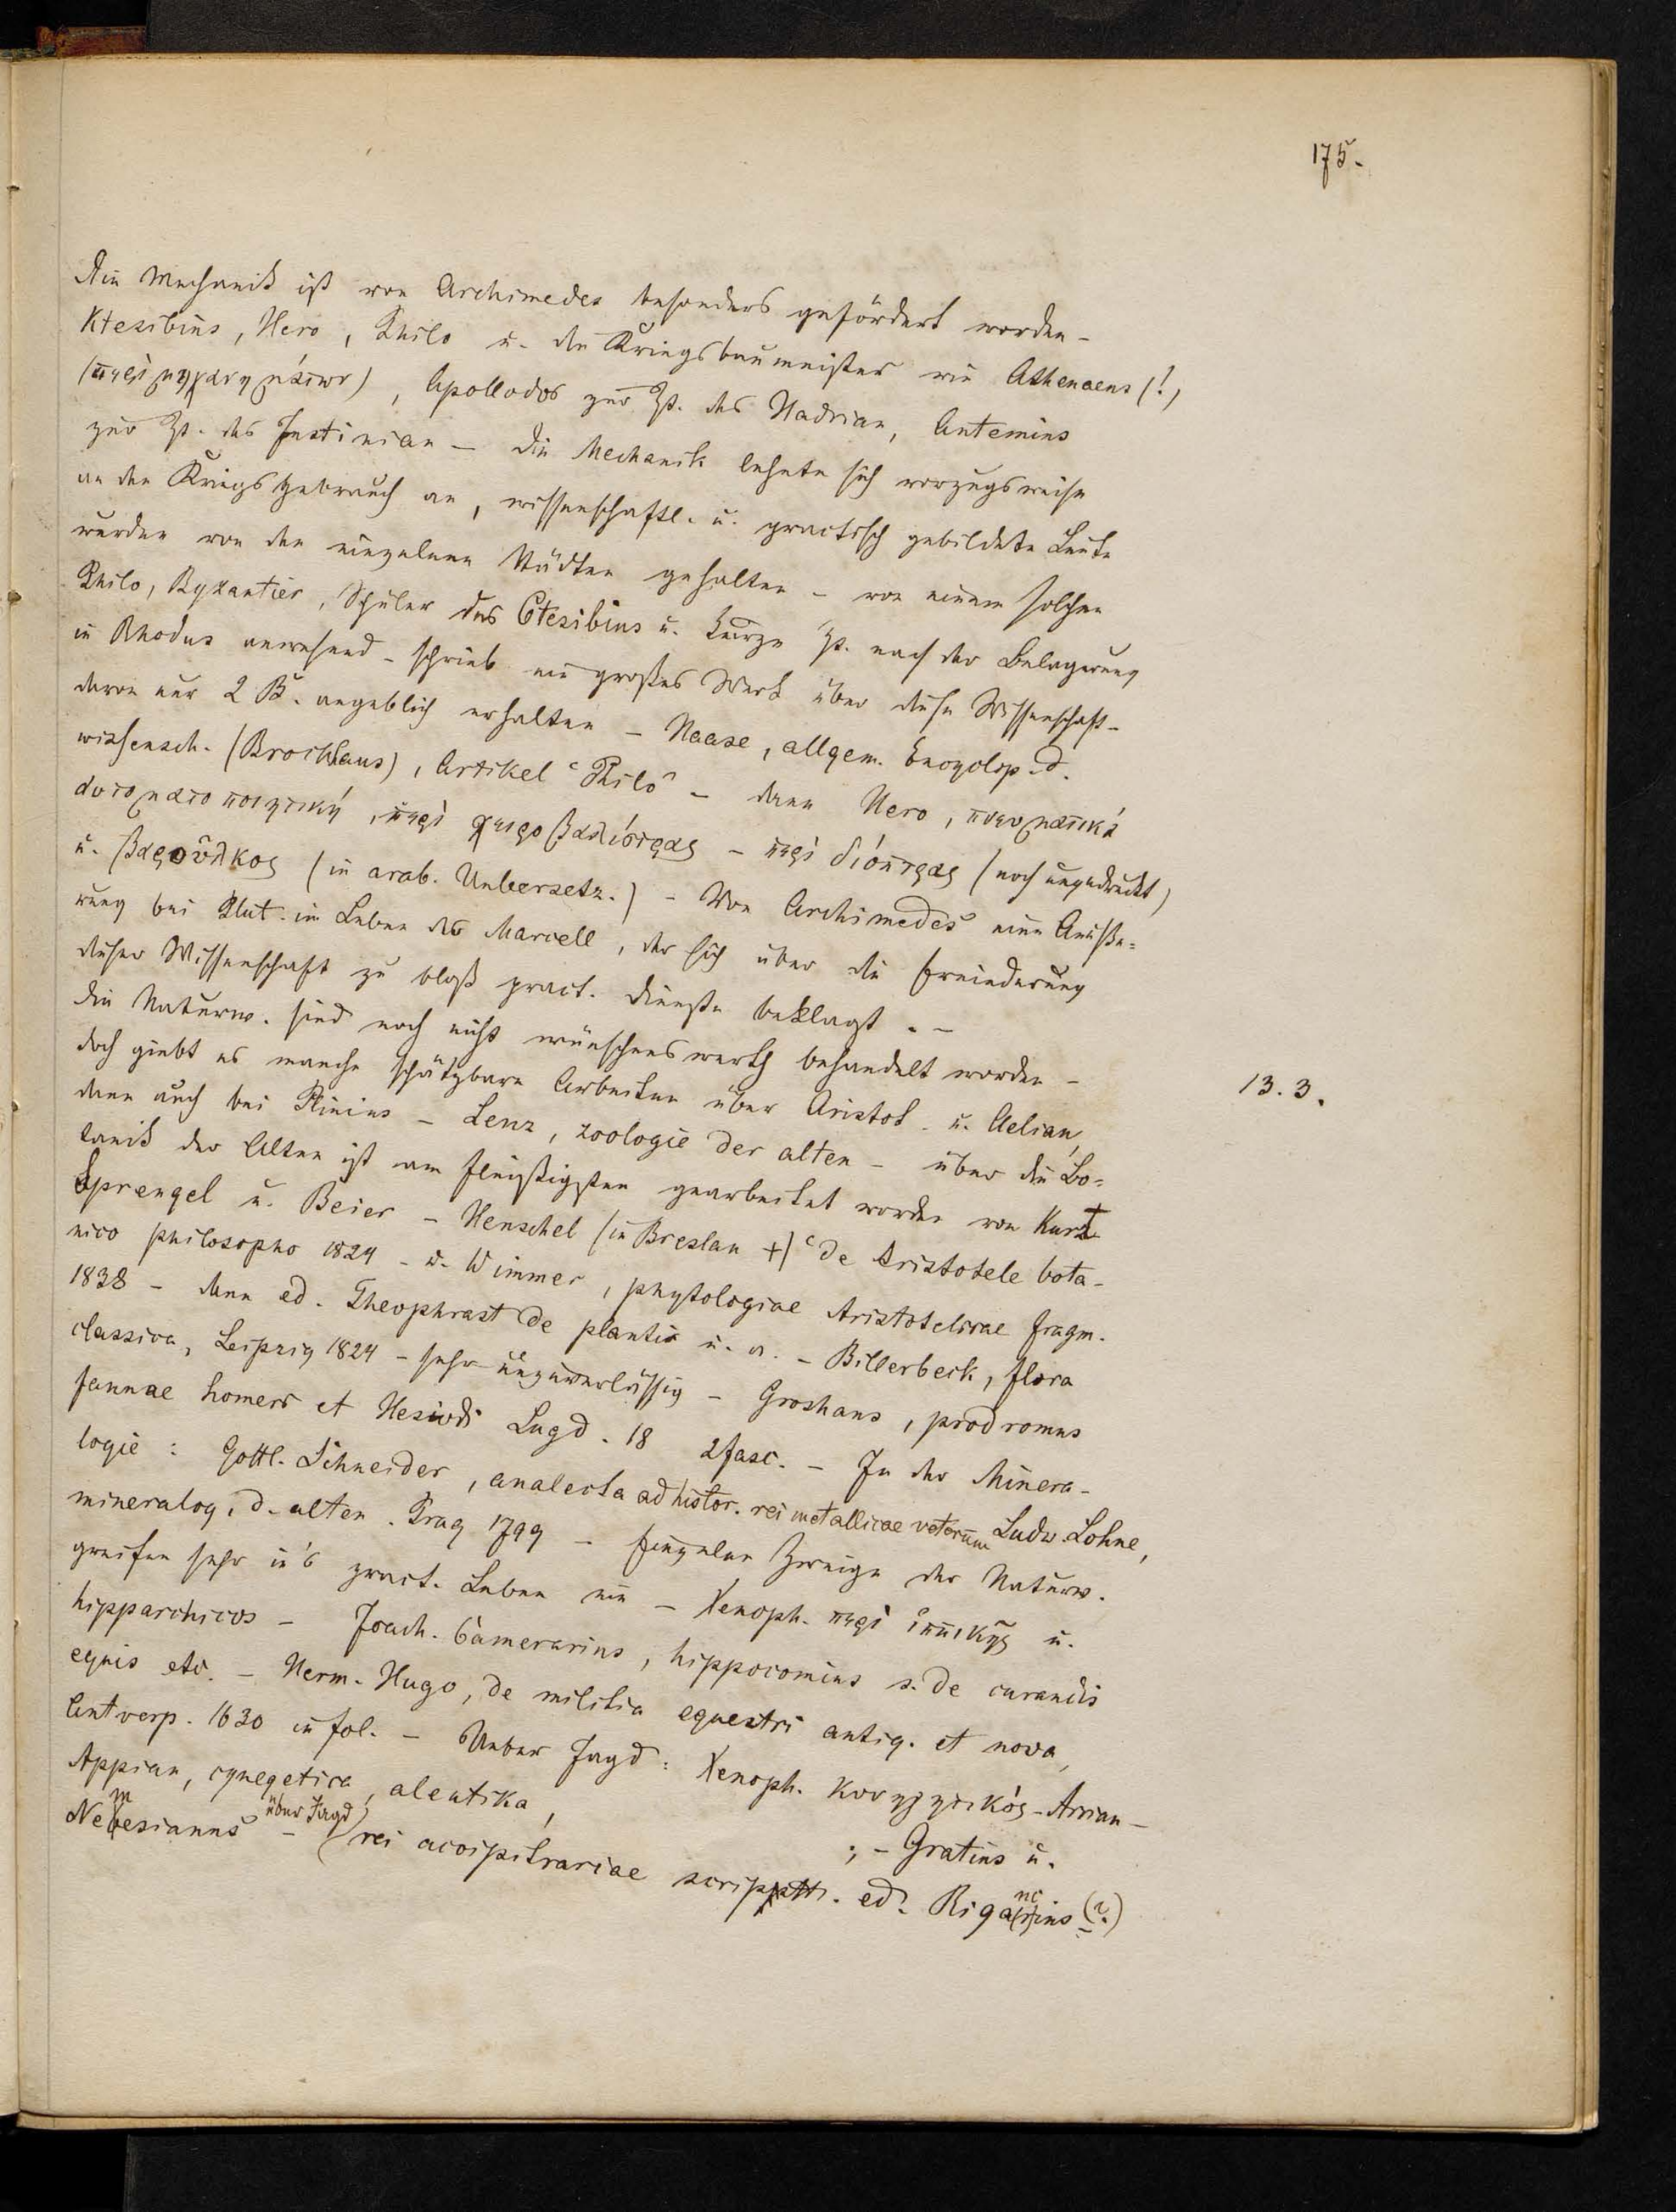 175.
Die Mechanik ist von Archimedes besonders gefördert worden -
Ktesibius, Hero, Philo u. den Kriegsbaumeister wie Athenaeus (!)
(περὶ μηχανημάτων), Apollodor zur Zt. des Hadrian, Antemius
zur Zt. des Justinian - Die Mechanik lehnte sich vorzugsweise
an den Kriegsgebrauch an, wissenschaftl. u. practisch gebildete Leute
wurden von den einzelnen Städten gehalten - von einem solchen
Philo, Byzantier, Schüler des Ctesibius u. kurze Zt. nach der Belagerung
in Rhodus anwesend - schrieb ein großes Werk über diese Wissenschaft -
davon nur 2 B. angeblich erhalten - Haase, allgem. Encyclop. d.
wissensch. (Brockhaus), Artikel "Philo" - dann Hero, πνευματικά
αυτοματοποιητική, περὶ χειροβαλίστρας - περὶ διόπτρας (noch ungedruckt)
u. βαροῦλκος (in arab. Uebersetz.) - Von Archimedes eine Aeuße=
rung bei Plut. im Leben des Marcell, der sich über die Erniederung
dieser Wissenschaft zu bloß pract. Dienste beklagt. -
Die Naturw. sind noch nicht wünschenswerth behandelt worden -
13.3.
doch giebt es manche schätzbare Arbeiten über Aristot. u. Aelian,
dann auch bei Plinius - Lenz, zoologie der alten - über die Bo=
tanik der Alten ist am fleißigsten gearbeitet worden von Kurt
Sprengel u. Beier - Henschel (in Breslau +) "de Aristotele bota-
nico philosopho 1824 - u. Wimmer, phytologiae Aristotelicae fragm.
1838 - dann ed. Theophrast de plantis u. a. - Billerbeck, flora
classica, Leipzig 1824 - sehr unzuverlässig - Groshans, prodromus
faunae homeri et Hesiodi Lugd. 18 2 fasc. - In der Minera-
logie: Gottl. Schneider, analecta ad histor. rei metallicae veterum Ludw. Lohne,
mineralog. d. alten. Prag 1799 - Einzelne Zweige der Naturw.
greifen sehr in's pract. Leben ein - Xenoph. περὶ ἱππικῆς u.
hipparchicos - Joach. Camerarius, hippocomius s. de curandis
equis etc. - Herm. Hugo, de militia equestri antiq. et nova,
Antverp. 1630 in fol. - Ueber Jagd: Xenoph. κυνηγητικός - Arrian -
Appian, cynegetica, aleutika, ; - Gratius u.
Nemesianus - über Jagd) (rei accipitrariae scriptt. ed. Rigancius (?)